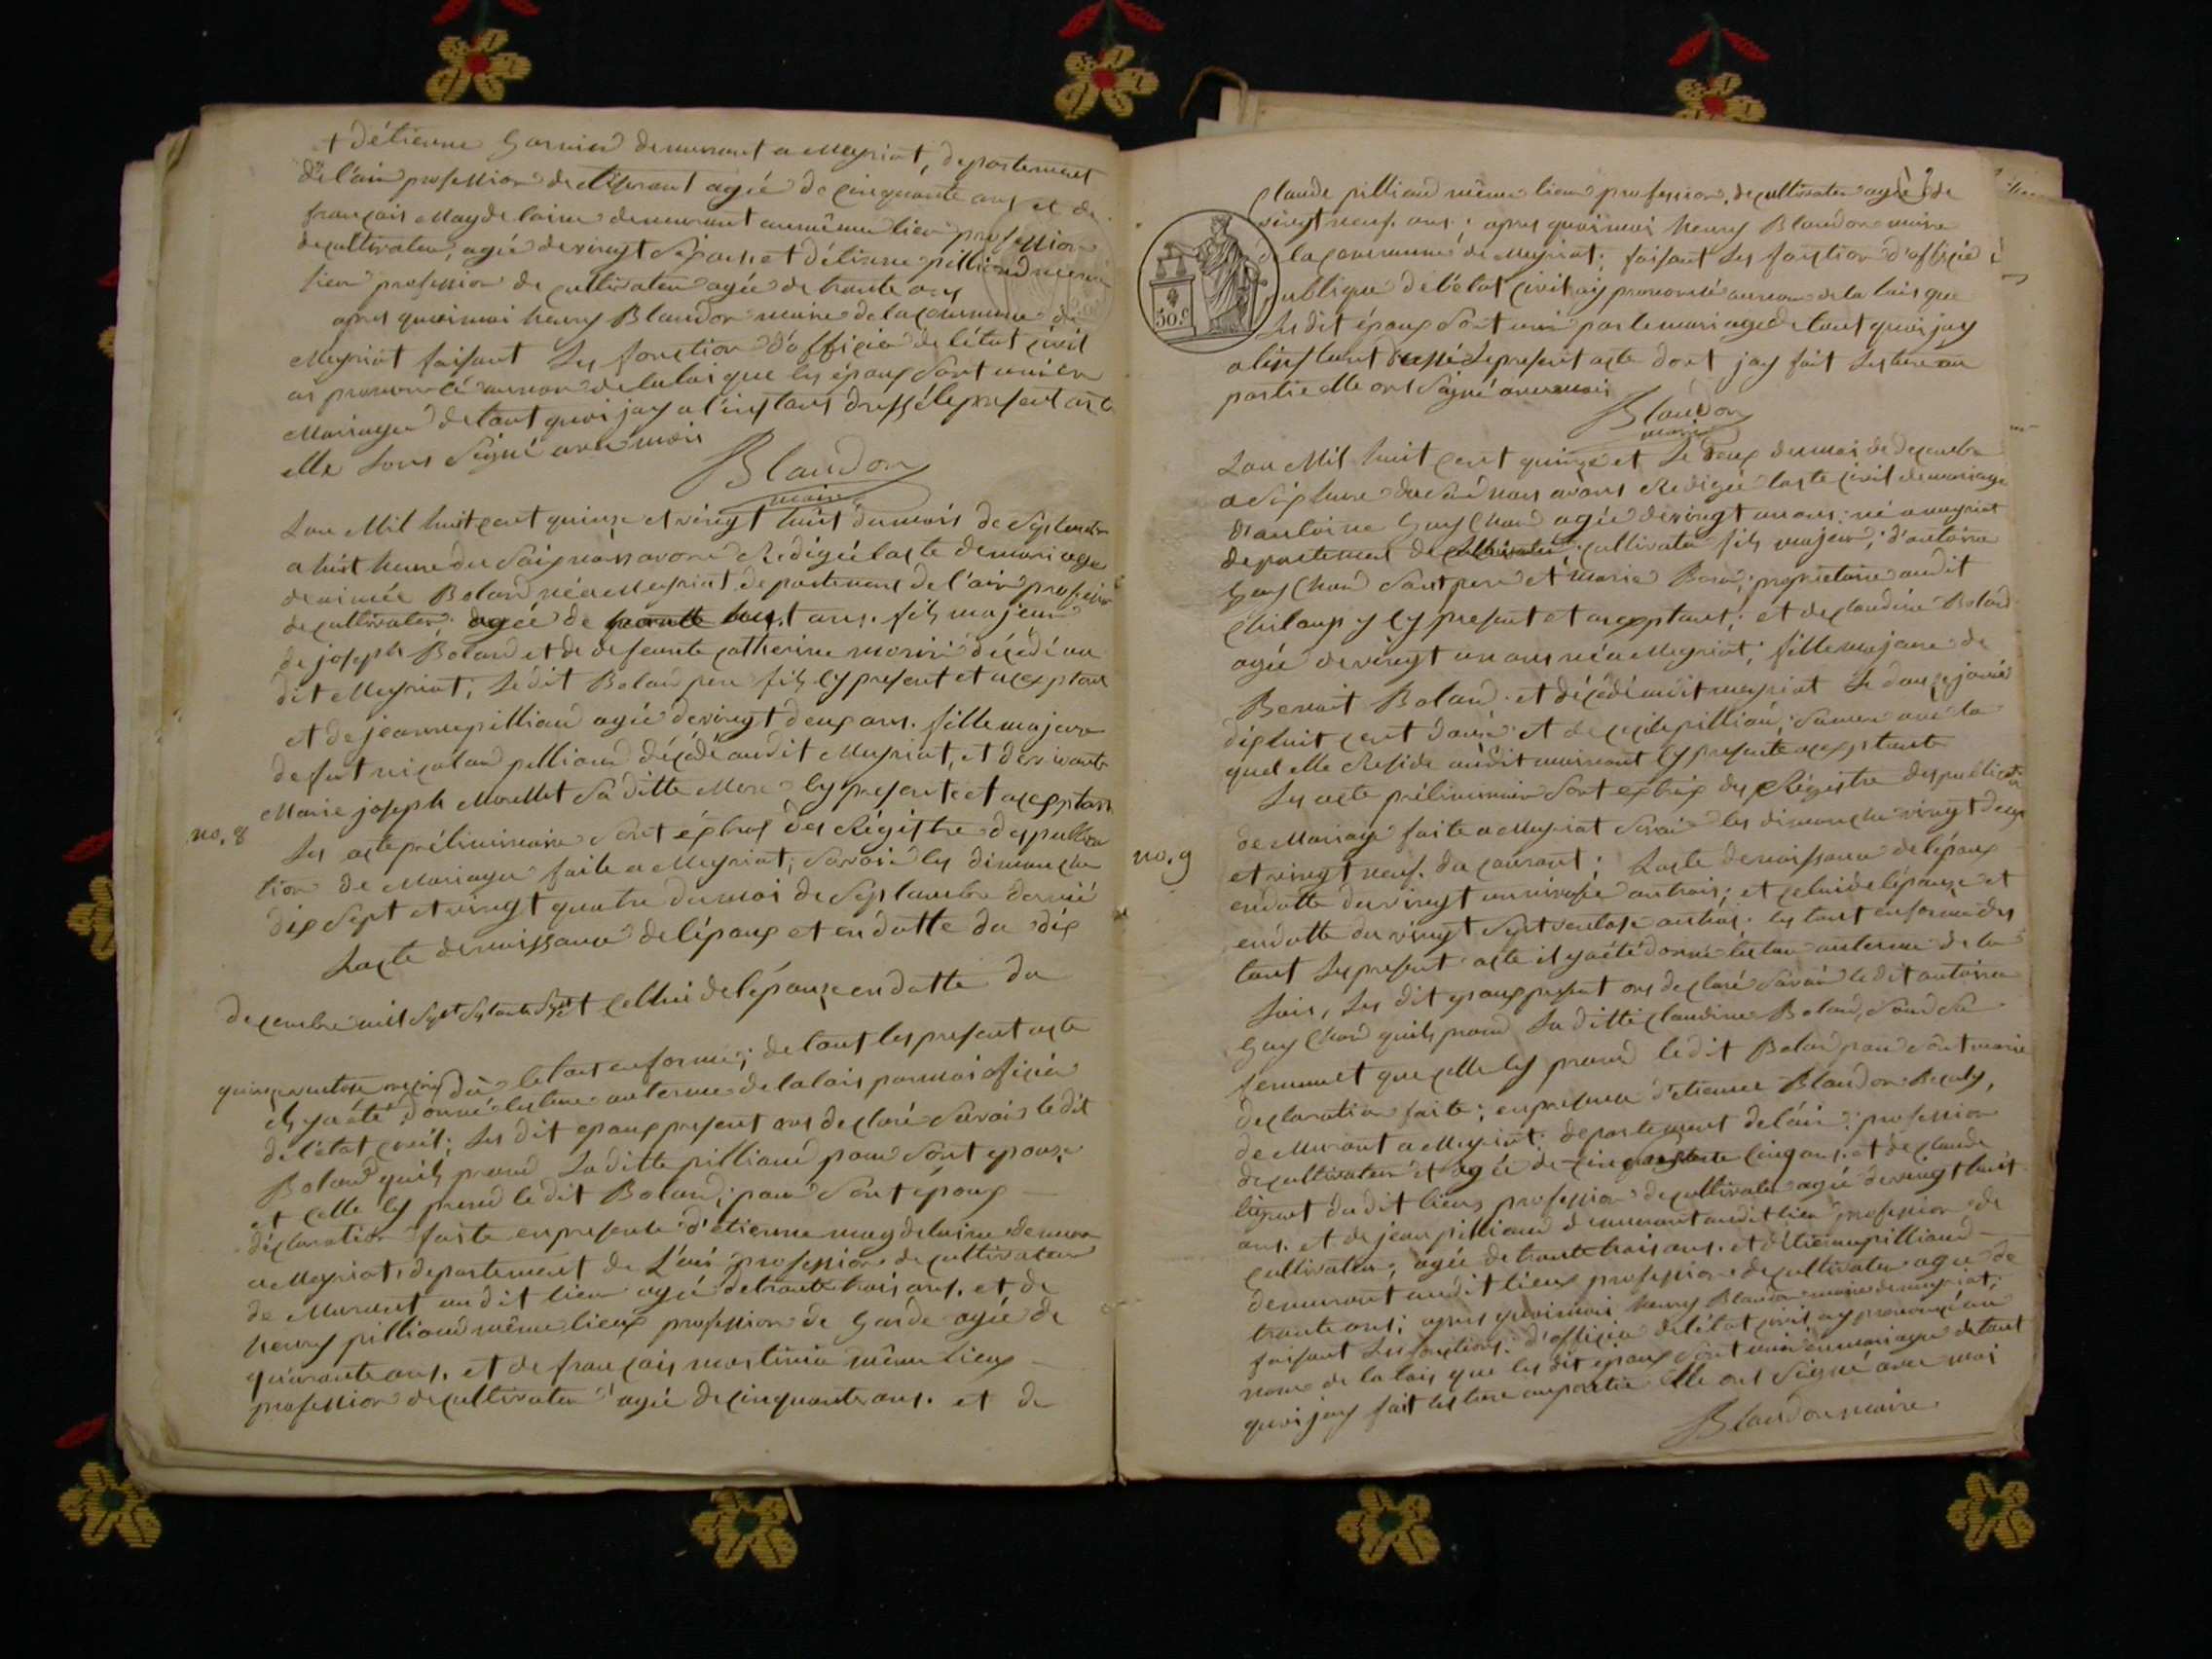 + d'étienne Garnier demeurant a Meyriat, departement
de l'ain profession de tisserant agée de cinquante ans et de
françois Magdelaine demeurant au même lieu profession
de cultivateur, agée de vingt six ans et d'étienne pilliaud meme
lieu profession de cultivateur agée de trante ans
apres quoi moi henry Blandon maire de la commune de
Meyriat faisant les fonction d'officié de l'état civil
ai prononcé au nom de la loi que les époux sont uni en
Mariage de tout quoi jay a l'instant dressé le present acte
elle sons Signé avec mois
Blandon
maire
Lan Mil huit cent quinze et vingt huit du mois de Septembre
a huit heure du Soir nous avons Redigée lacte de mariage
de aimée Boland né a Meyriat departement de l'ain profession
de cultivateur agée de ans. fils majeur
de joseph Boland et de defeunte catherine décédé au
dit Meyriat, le dit Boland pere fils cy present et aceptant
et de jeanne pilliaud agée de vingt deux ans. fille majeure
de fut nicoland pilliaud décédé audit Meyriat, et de vivante
Marie joseph Morellet Sa ditte Mere cy presente et aceptant
no. 8
Les acte préliminaire Sont éxtrai des Régistre des publica
tion de Mariage faite a Meyriat; Savoir les dimanche
dix Sept et vingt quatre du moi de Septembre dernié
Lacte de naissance de lépoux et en datte du dix
decembre mil Sept Septante Sept et cellui de lépouze en datte du
quinze le tout en forme; de tout les present acte
il y a été donné lecture au terme de la lois par moi oficié
de l'état civil; Les dit epoux present ons declaré Savoir le dit
Boland quils prend La ditte pilliaud pour Sont epouze
et celle ly prend le dit Boland; pour Sont époux
déclaration faite en presente d'étienne magdelaine demeurant
a Meyriat, departement de L'ain profession de cultivateur
de Meurant au dit lieu agé de trante trois ans. et de
henry pilliaud même lieux profession de Garde agée de
quarante ans, et de françois martinié même lieux
profession de cultivateur agée de cinquante ans. et de
claude pilliaud même lieu profession de cultivateur agée de
vingt neuf. ans; apres quoi moi henry Blandon maire
de la commune de Meyriat; faisant les fonction d'officié
publique de l'état civil ay prononcé au nom de la lois que
les dit époux sont uni par le mariage de tout quoi jay
a linstant dressé le present acte dont jay fait lecture au
partie elle ons Signé avec mois
50. C
Blandon
maire
Lan Mil huit cent quinze et le deux du moi de decembre
a Six heure du Soir nous avons Redigée lacte civil de mariage
d'antoine Guy Chard agée de vingt un ans; né a meyriat
departement de cultivateur fils majeur; d'antoine
Guy Chard Sont pere et marie propriétaire audit
cy present et aceptant; et de claudine Boland
agée de vingt un ans né a Meyriat; fille majeure de
Benoit Boland et décédé audit meyriat le douze
dix huit cent douze et de cecile pilliaud; Sa mere avec la
quel elle Reside audit meyriat cy presente aceptante
Les acte préliminaire Sont éxtrai des Régistre des publication
de Mariage faite a Meyriat Savoir les dimanche vingt deux
no. 9
et vingt neuf. du courant; Lacte de naissance de lépoux
en datte du vingt un nivose an trois; et celui de lépouze et
en datte du vingt Sept ventose an trois. les tout en forme des
tout les present acte il y a été donné lecture au terme de la
lois, les dit epoux present ons declaré Savoir le dit antoine
Guy Chard quils prend La ditte claudine Boland, Sond Sa
femme et que celle ly prend le dit Boland pour Sont marie
declaration faite; en presence d'étienne Blandon
de Meurant a Meyriat; departement de lain; profession
de cultivateur et agée de cinquante cinq ans. et de claude
du dit lieux profession de cultivateur agée de vingt huit
ans. et de jean pilliaud demeurant audit lieu profession de
cultivateur, agée de trante trois ans. et d'étienne pilliaud
demeurant audit lieux profession de cultivateur agée de
trante ans; apres quoi moi henry Blandon maire de meyriat;
faisant les fonctions d'officié de létat civil ay prononcé au
nom de la lois que les dit époux Sont uni en mariage de tout
quoi jay fait lecture au partie elle ont Signé avec moi
Blandon maire